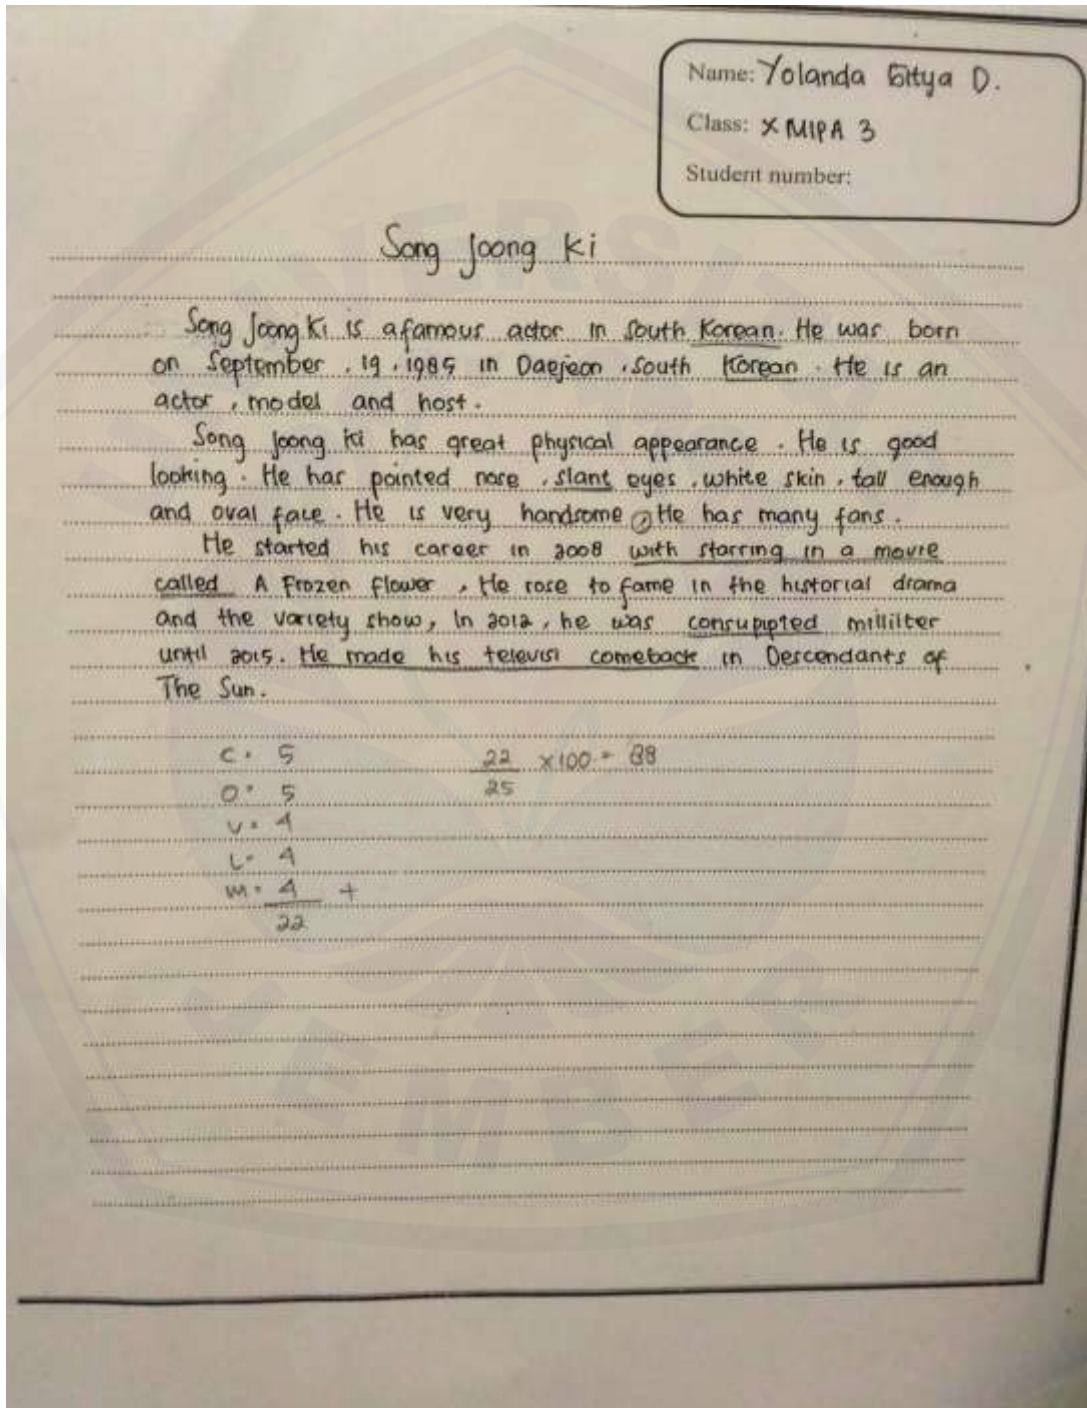 Name: Yolanda Sitya D.
Class: X MIPA 3
Student number:
Song Joong Ki
Song Joong Ki is a famous actor in South Korean. He was born
on September, 19, 1985 in Daejeon, South Korean. He is an
actor, model and host.
Song Joong Ki has great physical appearance. He is good
looking. He has pointed nose, slant eyes, white skin, tall enough
and oval face. He is very handsome, He has many fans.
He started his career in 2008 with starring in a movie
called A Frozen Flower, He rose to fame in the historial drama
and the variety show, In 2012, he was consupipted millilter
until 2015. He made his televisi comeback in Descendants of
The Sun.
C = 5
O = 5
V = 4
L = 4
M = 4 +
22
22 x100 = 88
25
UNIVERSITAS
JEMBER